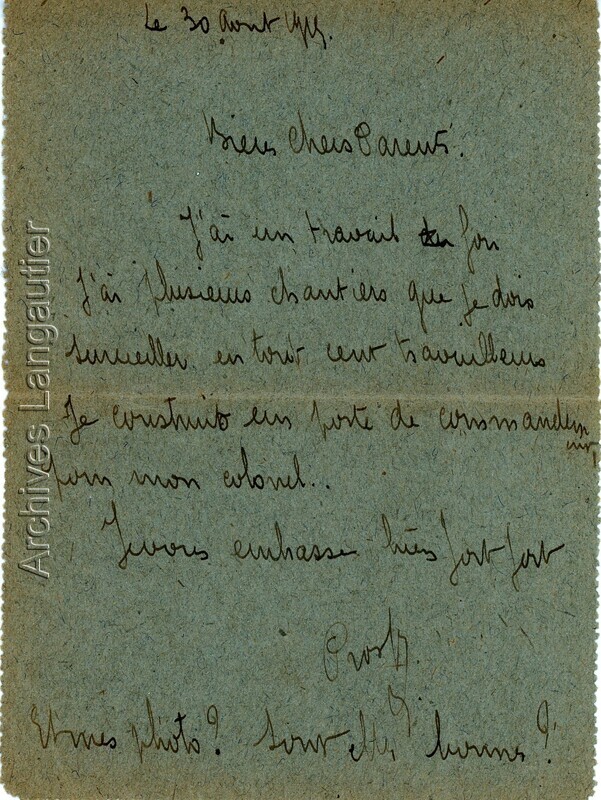 Le 30 Aout 1915.
Biens Chers Parents.
J'ai un travail fou
J'ai plusieurs chantiers que je dois
surveiller en tout cent travailleurs
Je construit un poste de commandem
ent
pour mon colonel..
Je vous embrasse biens fort fort
Et mes photo? Sont elles bonnes?
Archives Langautier